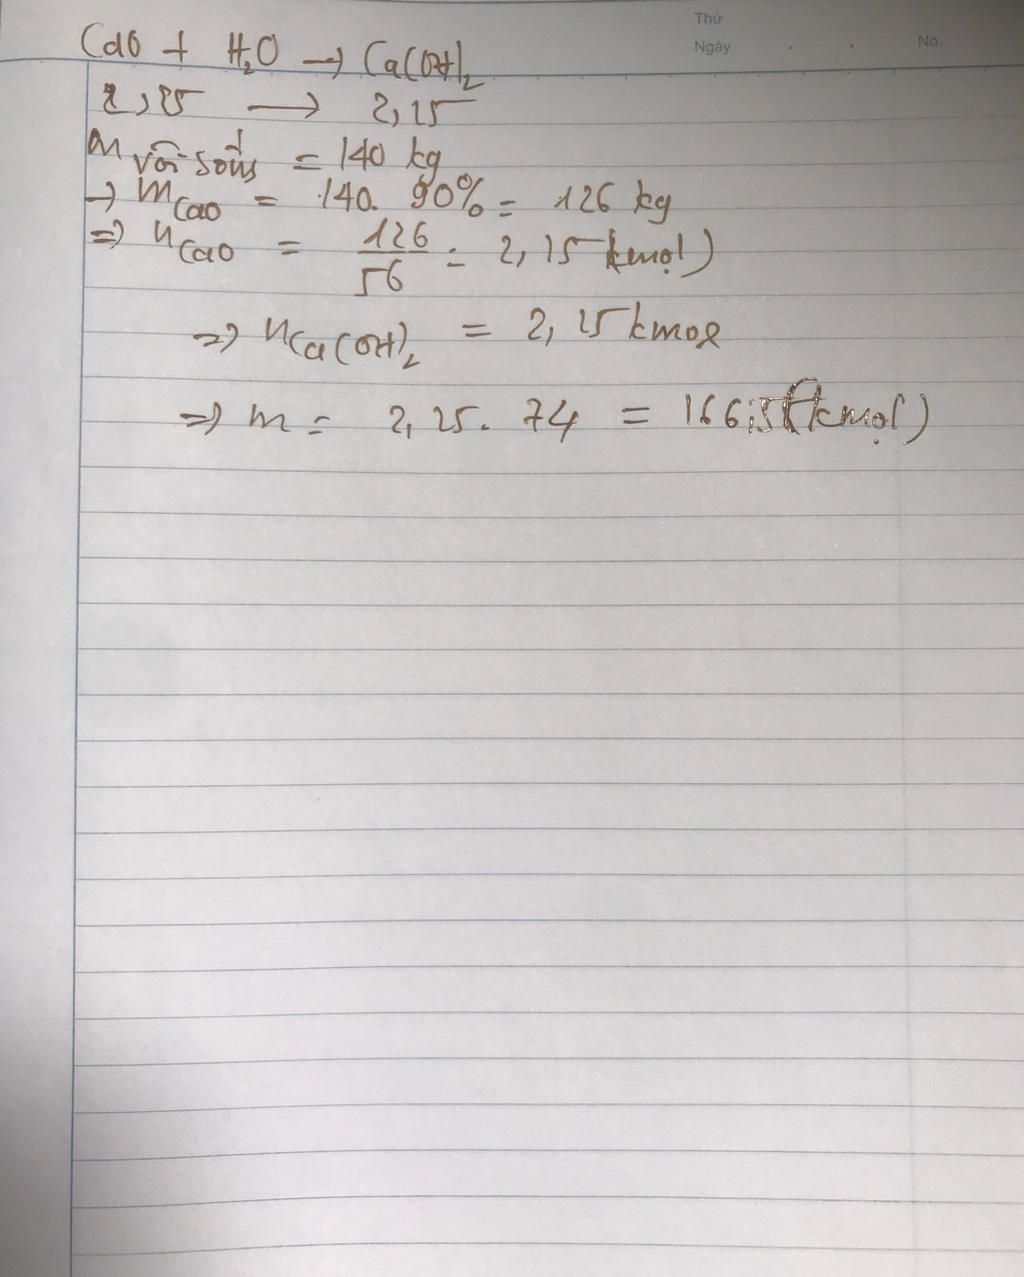 Thứ
Ngày . . No.
CaO + H₂O → Ca(OH)₂
2,25 → 2,25
m vôi sống = 140 kg
→ mCaO = 140. 90% = 126 kg
⇒ nCaO = 126/56 = 2,25 kmol)
⇒ nCa(OH)₂ = 2,25 kmol
⇒ m = 2,25. 74 = 166,5 (kmol)